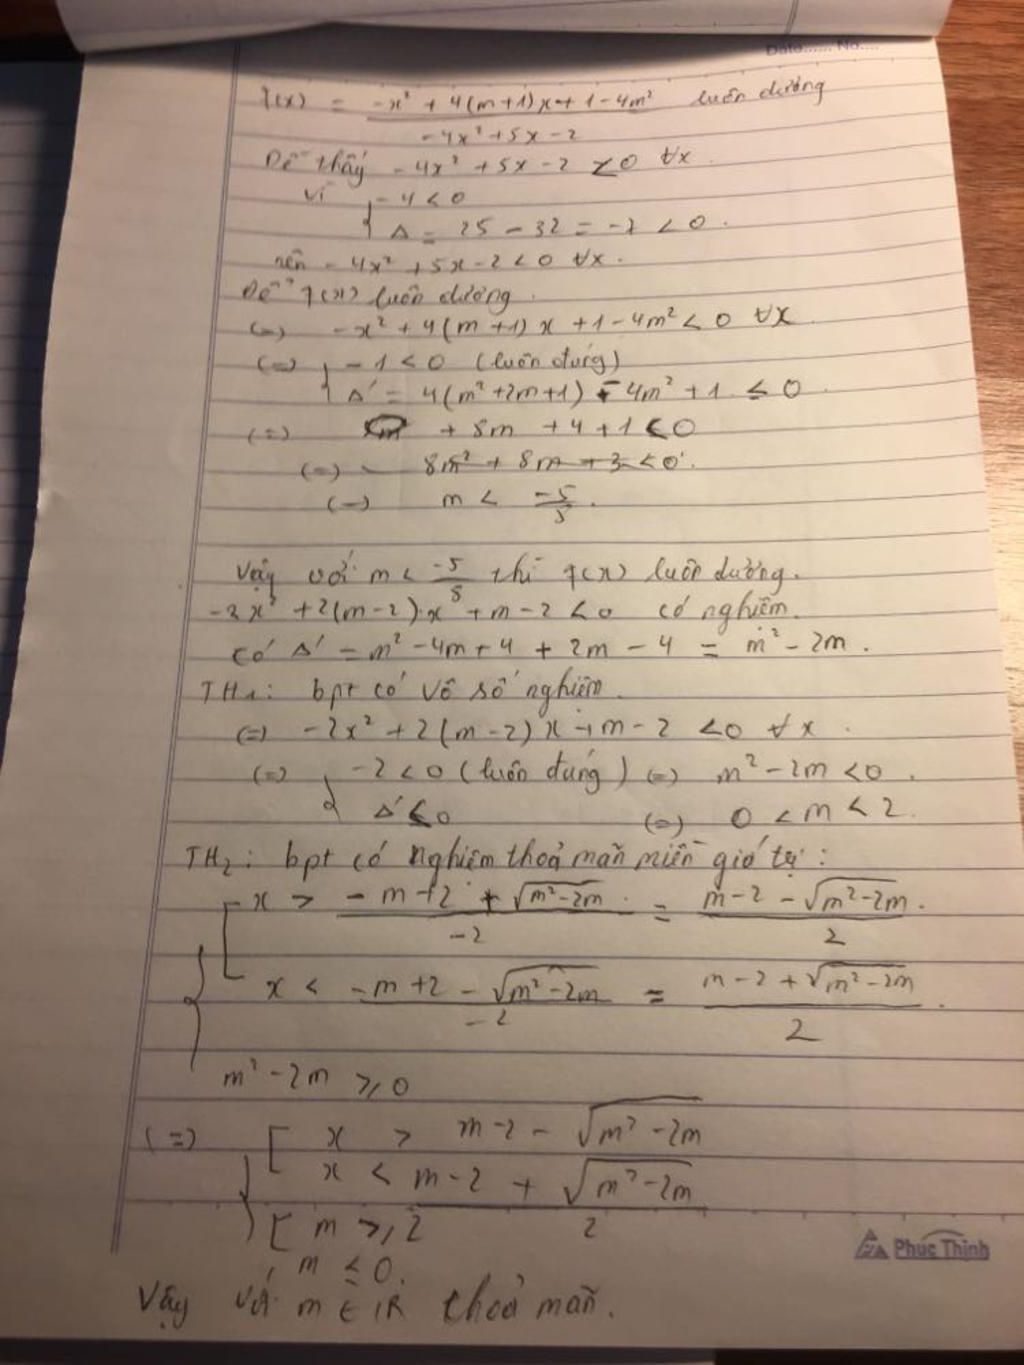 Date...... No....
f(x) = (-x² + 4(m+1)x + 1 - 4m²) / (-4x² + 5x - 2) luôn dương
Dễ thấy -4x² + 5x - 2 < 0 ∀x.
Vì { -4 < 0
Δ = 25 - 32 = -7 < 0.
nên -4x² + 5x - 2 < 0 ∀x.
Để f(x) luôn dương.
(=) -x² + 4(m+1)x + 1 - 4m² < 0 ∀x
(=) { -1 < 0 (luôn đúng)
Δ' = 4(m² + 2m + 1) - 4m² + 1 ≤ 0
(=) + 8m + 4 + 1 < 0
(=) 8m² + 8m + 3 < 0.
(=) m < -5/5.
Vậy với m < -5/8 thì f(x) luôn dương.
-2x² + 2(m-2).x + m - 2 < 0 có nghiệm.
Có Δ' = m² - 4m + 4 + 2m - 4 = m² - 2m.
TH1: bpt có vô số nghiệm.
(=) -2x² + 2(m-2)x + m - 2 < 0 ∀x.
(=) { -2 < 0 (luôn đúng) (=) m² - 2m < 0.
Δ' ≤ 0 (=) 0 < m < 2.
TH2: bpt có nghiệm thoả mãn miền giá trị:
{ [ x > (-m + 2 + √(m² - 2m)) / -2 = (m - 2 - √(m² - 2m)) / 2.
x < (-m + 2 - √(m² - 2m)) / -2 = (m - 2 + √(m² - 2m)) / 2.
m² - 2m ≥ 0
(=) { [ x > m - 2 - √(m² - 2m)
x < (m - 2 + √(m² - 2m)) / 2
[ m ≥ 2
m ≤ 0.
Vậy với m ∈ IR thoả mãn.
Phuc Thinh